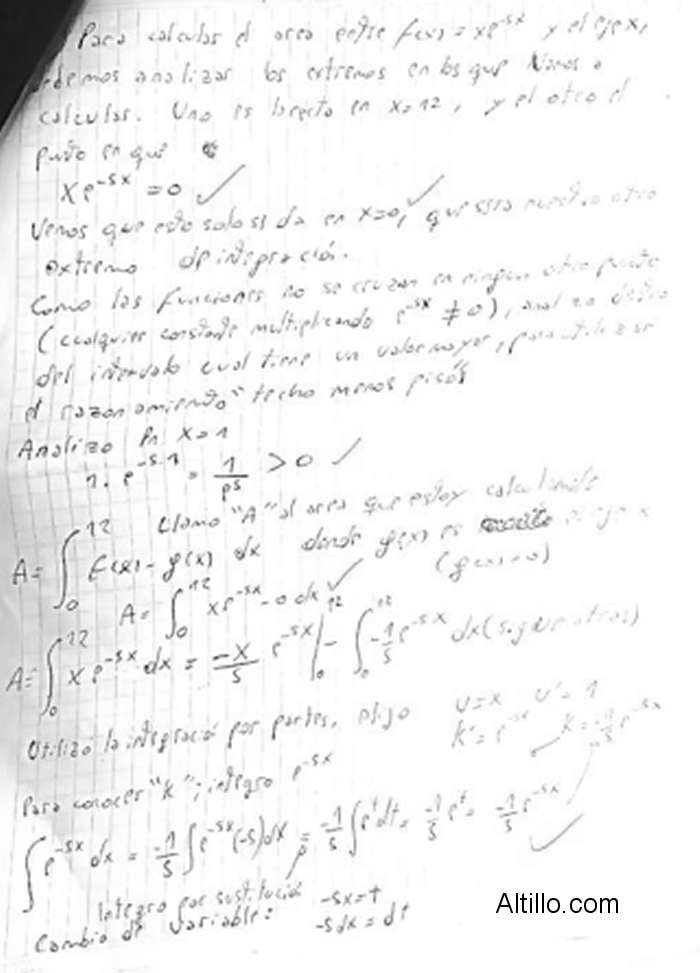 Para calcular el area entre f(x) = xe^{-5x} y el eje x,
demos analizar los extremos en los que vamos a
calcular. Uno es la recta en x=12, y el otro el
punto en que
xe^{-5x} = 0 ✓
Vemos que esto solo se da en x=0, ✓ que sera nuestro otro
extremo de integración.
Como las funciones no se cruzan en ningun otro punto
(cualquier constante multiplicando e^{-5x} ≠ 0), analizo dentro
del intervalo cual tiene un valor mayor, para utilizar
el razonamiento "techo menos piso"
Analizo en x=1
1. e^{-5.1} = 1/e^5 > 0 ✓
Llamo "A" al area que estoy calculando
A = ∫_0^{12} f(x) - g(x) dx donde g(x) es el eje x
(g(x)=0)
A = ∫_0^{12} xe^{-5x} - 0 dx ✓
A = ∫_0^{12} xe^{-5x} dx = -x/5 e^{-5x} |_0^{12} - ∫_0^{12} -1/5 e^{-5x} dx (sigue atras)
Utilizo la integración por partes, elijo u=x u'=1
k'=e^{-5x} k=-1/5 e^{-5x}
Para conocer "k"; integro e^{-5x}
∫ e^{-5x} dx = -1/5 ∫ e^{-5x} (-5)dx = -1/5 ∫ e^t dt = -1/5 e^t = -1/5 e^{-5x} ✓
Integro por sustitució -5x=t
Cambio de variable: -5dx = dt
Altillo.com